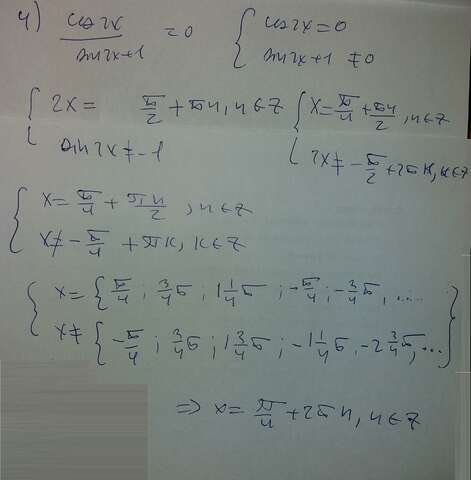 4) cos2x / sin2x+1 = 0 { cos2x = 0
sin2x+1 ≠ 0
{ 2x = π/2 + πn, n∈Z { x = π/4 + πn/2, n∈Z
sin2x ≠ -1 2x ≠ -π/2 + 2πk, k∈Z
{ x = π/4 + πn/2, n∈Z
x ≠ -π/4 + πk, k∈Z
{ x = { π/4 ; 3/4 π ; 1 1/4 π ; -π/4 ; -3/4 π, ....
x ≠ { -π/4 ; 3/4 π ; 1 3/4 π ; -1 1/4 π, -2 3/4 π, ... }
=> x = π/4 + 2πn, n∈Z